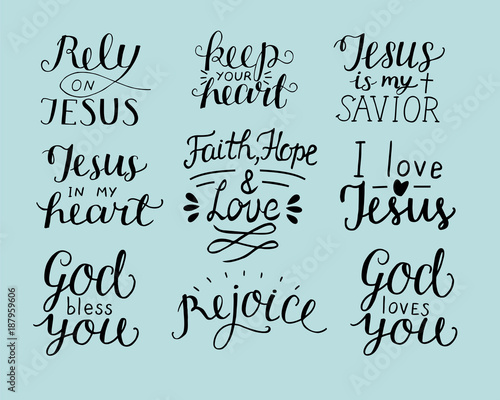 Rely
ON
JESUS
keep
YOUR
heart
Jesus
is my
SAVIOR
Jesus
IN MY
heart
Faith, Hope
&
Love
I love
Jesus
God
bless
you
Rejoice
God
loves
you
Adobe Stock | #187959606